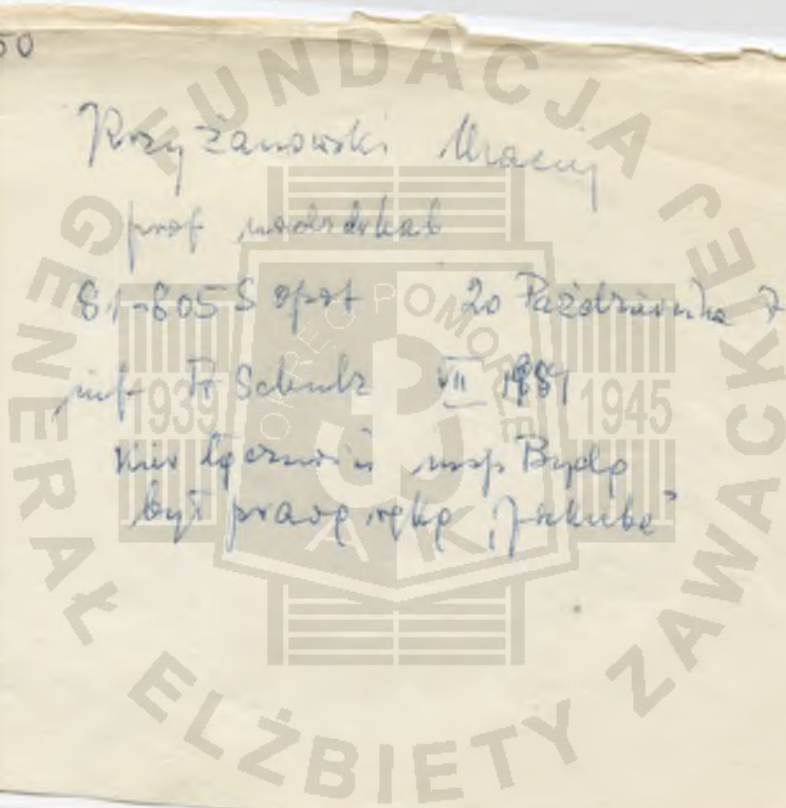 50
Krzyżanowski Maciej
prof nadzw. hab
81-805 Sopot 20 Października 7
inf Fr Schulz VII 1989
kier łączności insp Bydg
był prawą ręką „Jakuba”
FUNDACJA JEJ
GENERAŁ ELŻBIETY ZAWACKIEJ
OKRĘG POMORZE
1939 1945
AK